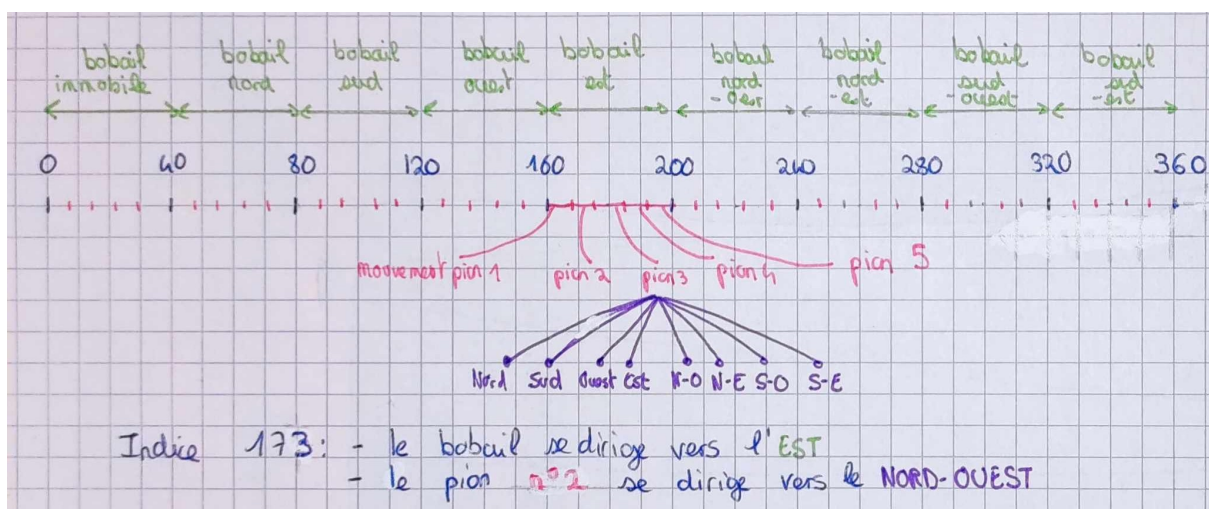 bobail immobile
bobail nord
bobail sud
bobail ouest
bobail est
bobail nord -ouest
bobail nord -est
bobail sud -ouest
bobail sud -est
0 40 80 120 160 200 240 280 320 360
mouvement pion 1 pion 2 pion 3 pion 4 pion 5
Nord Sud Ouest Est N-O N-E S-O S-E
Indice 173: - le bobail se dirige vers l'EST
- le pion n°2 se dirige vers le NORD-OUEST